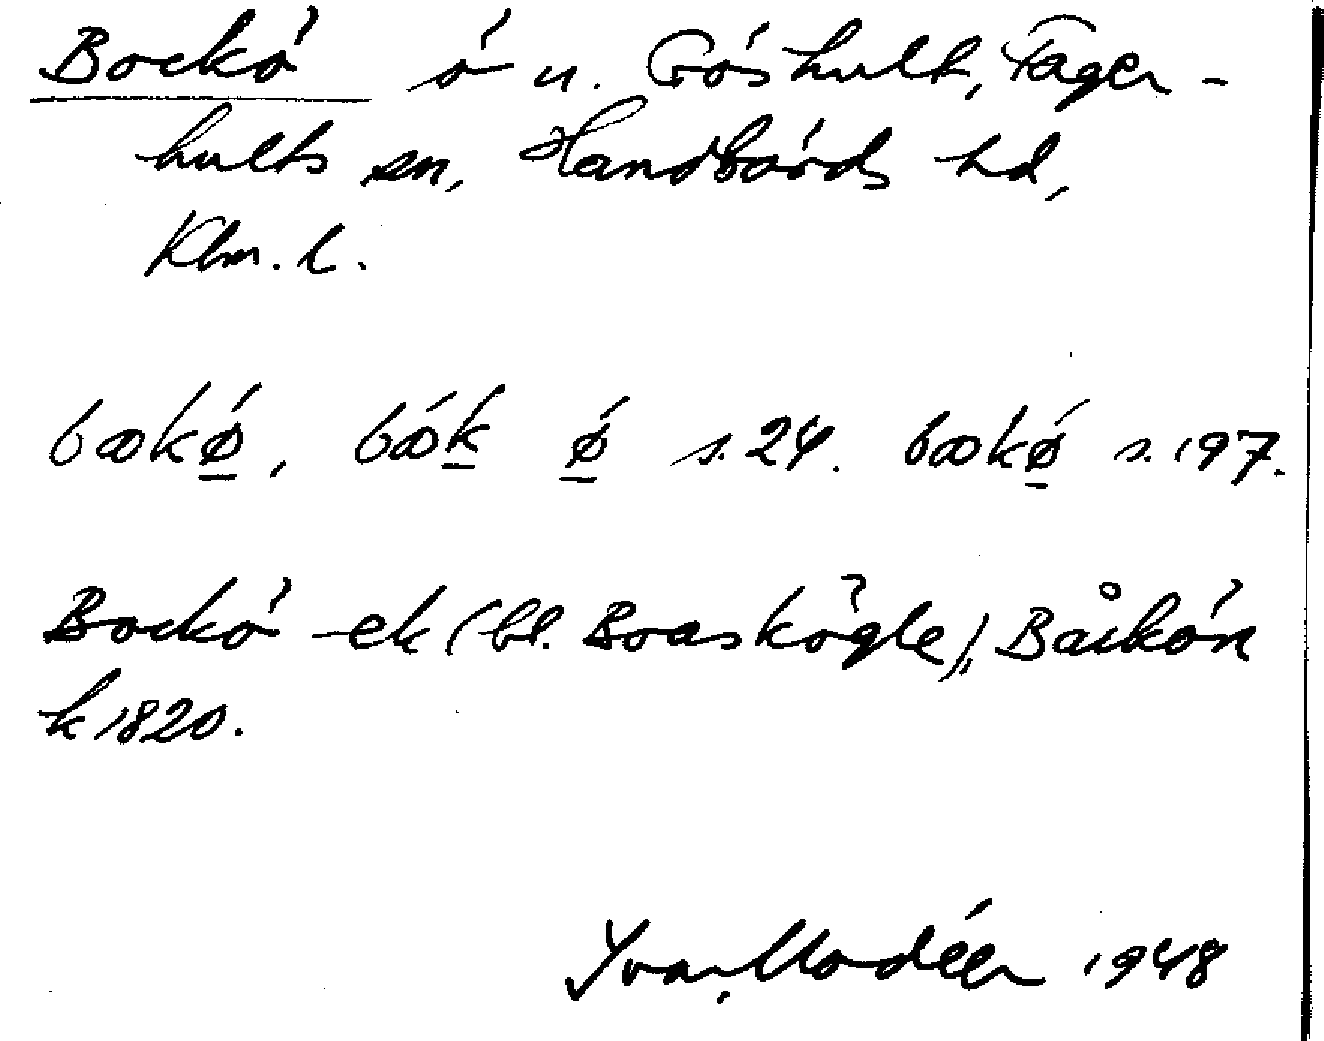 Bockö ö u. Gröshult, Fager-
hults sn, Handbörds hd,
Klm. l.
bɷkǿ̲, bɷ́k̲ ǿ̲ s. 24. bɷkǿ̲ s. 197.
Bockö -ek (bl. Boaskögle), Båckön
k 1820.
Ivar Modéer 1948